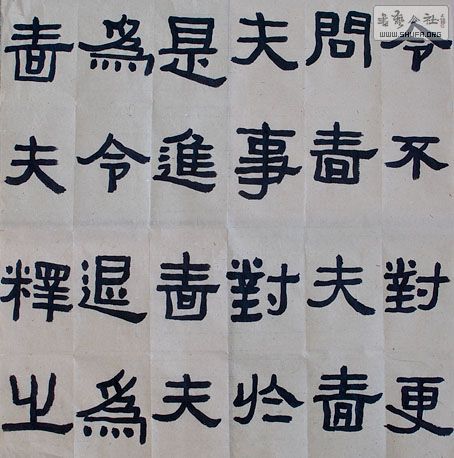 令不對更
問嗇夫嗇
夫事對於
是進嗇夫
為令退為
嗇夫釋之
書藝公社
WWW.SHUFA.ORG